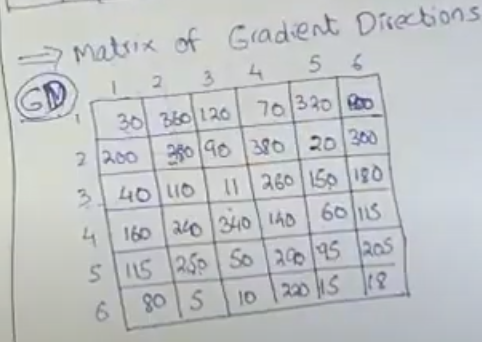 ⇒ Matrix of Gradient Directions
GD
1 2 3 4 5 6
1 30 360 120 70 320
2 200 380 90 380 20 300
3 40 110 11 260 150 180
4 160 240 340 140 60 115
5 115 250 50 290 95 205
6 80 5 10 220 15 18